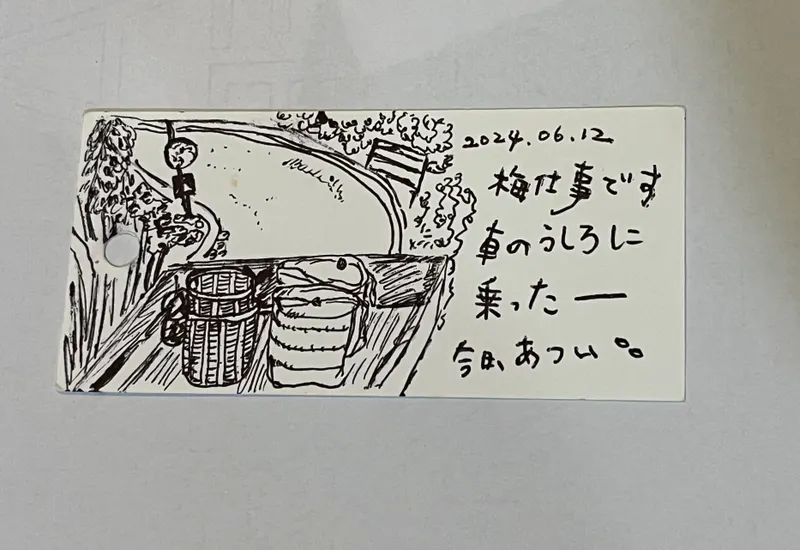 2024.06.12
梅仕事です
車のうしろに
乗ったー
今日、あつい。。